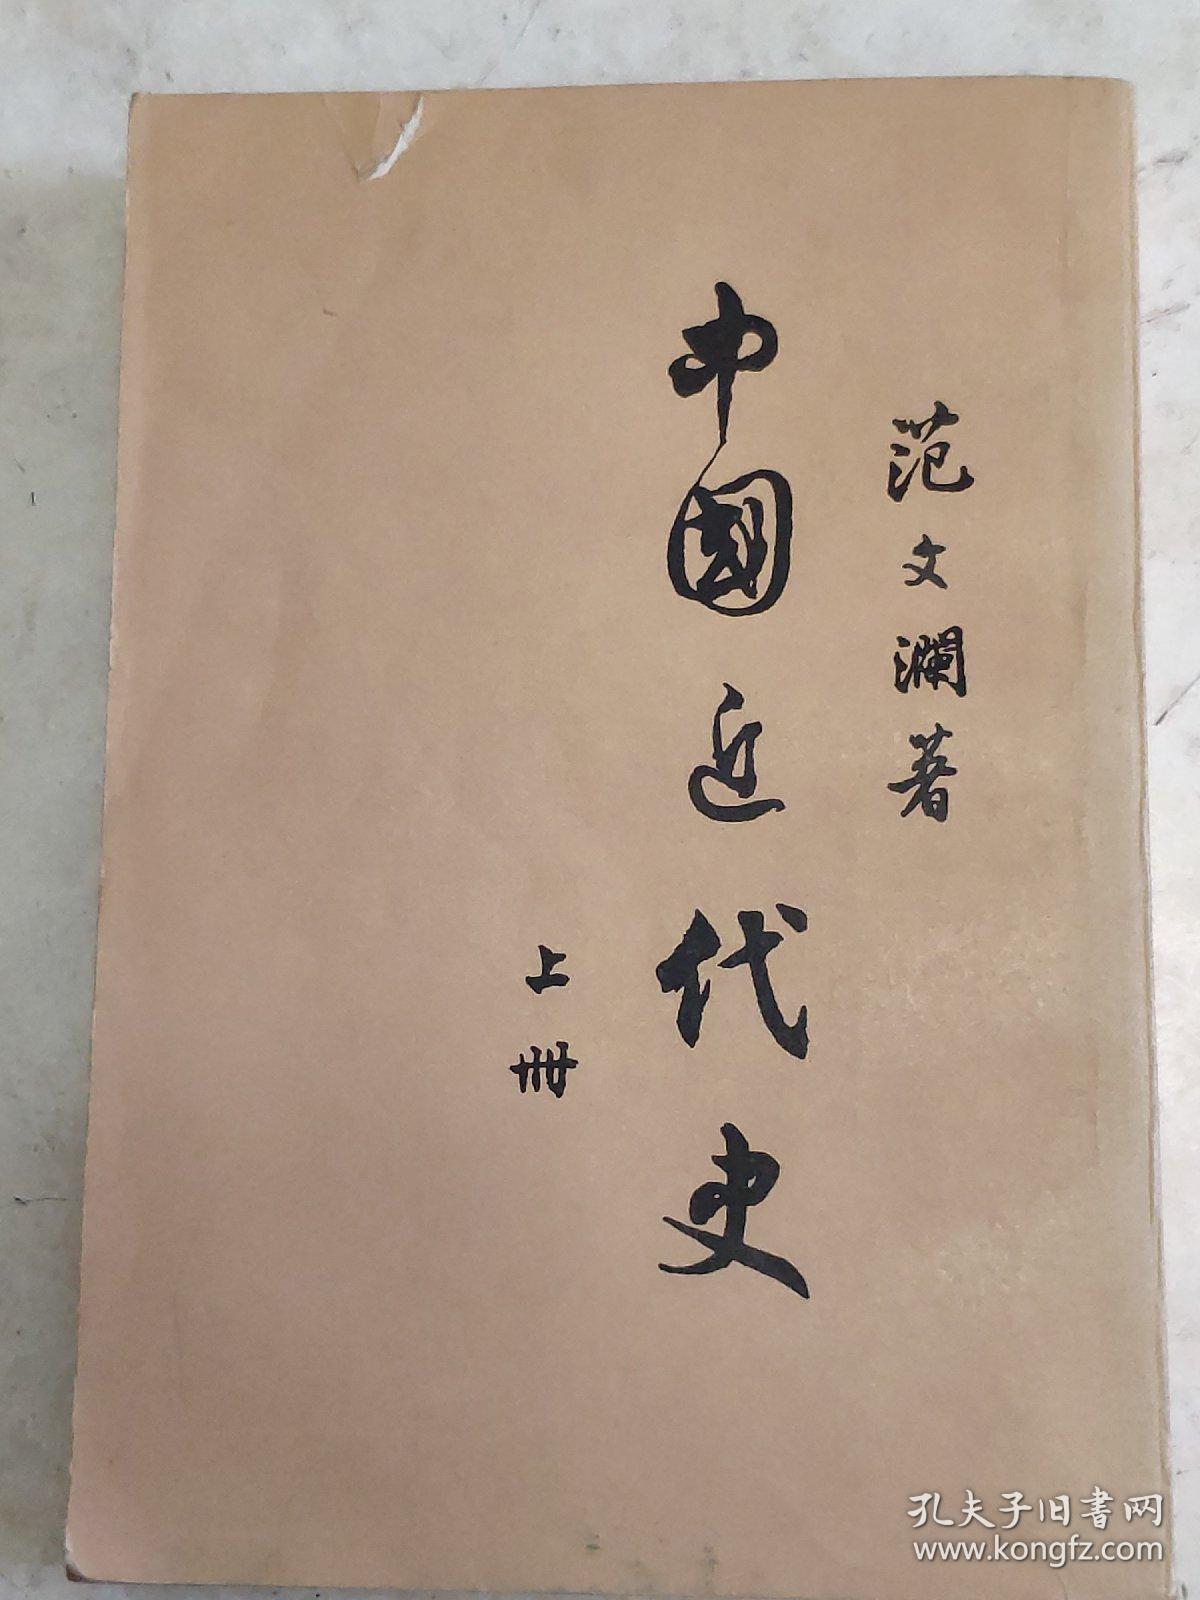 范文瀾著
中國近代史
上冊
孔夫子旧书网
www.kongfz.com